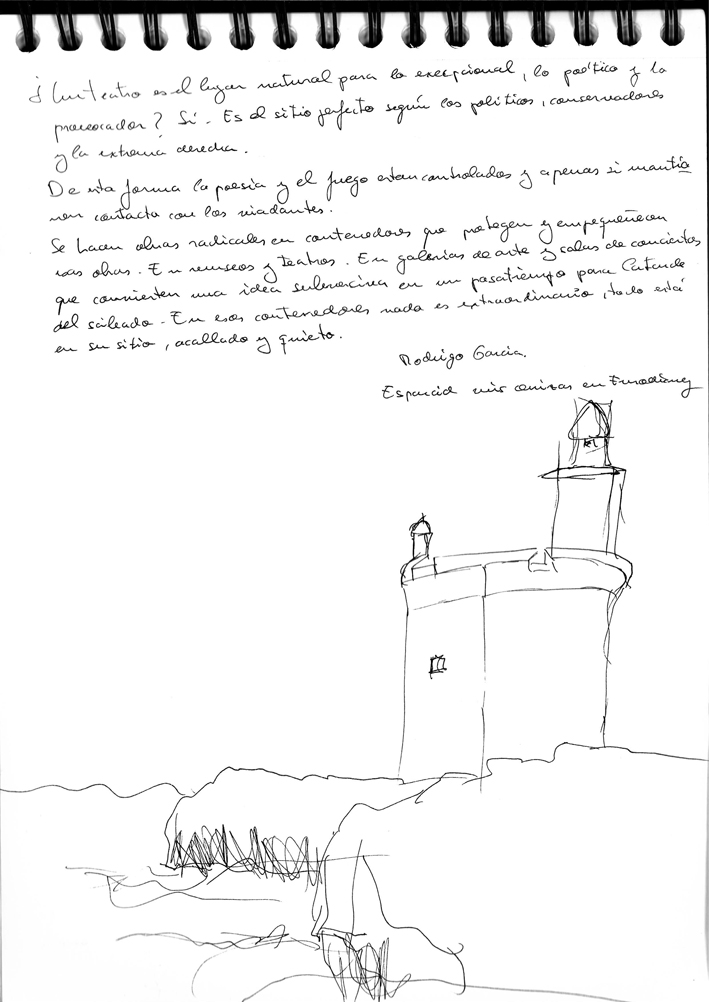 ¿Un teatro es el lugar natural para lo excepcional, lo poético y lo
provocador? Sí. Es el sitio perfecto según los políticos, conservadores
y la extrema derecha.
De esta forma la poesía y el fuego estan controlados y apenas si mantie
nen contacto con los viandantes.
Se hacen obras radicales en contenedores que protegen y empequeñecen
esas obras. En museos y teatros. En galerías de arte y salas de conciertos
que convierten una idea subversiva en un pasatiempo para la tarde
del sábado. En esos contenedores nada es extraordinario, todo está
en su sitio, acallado y quieto.
Rodrigo García.
Esparcid mis cenizas en Eurodisney